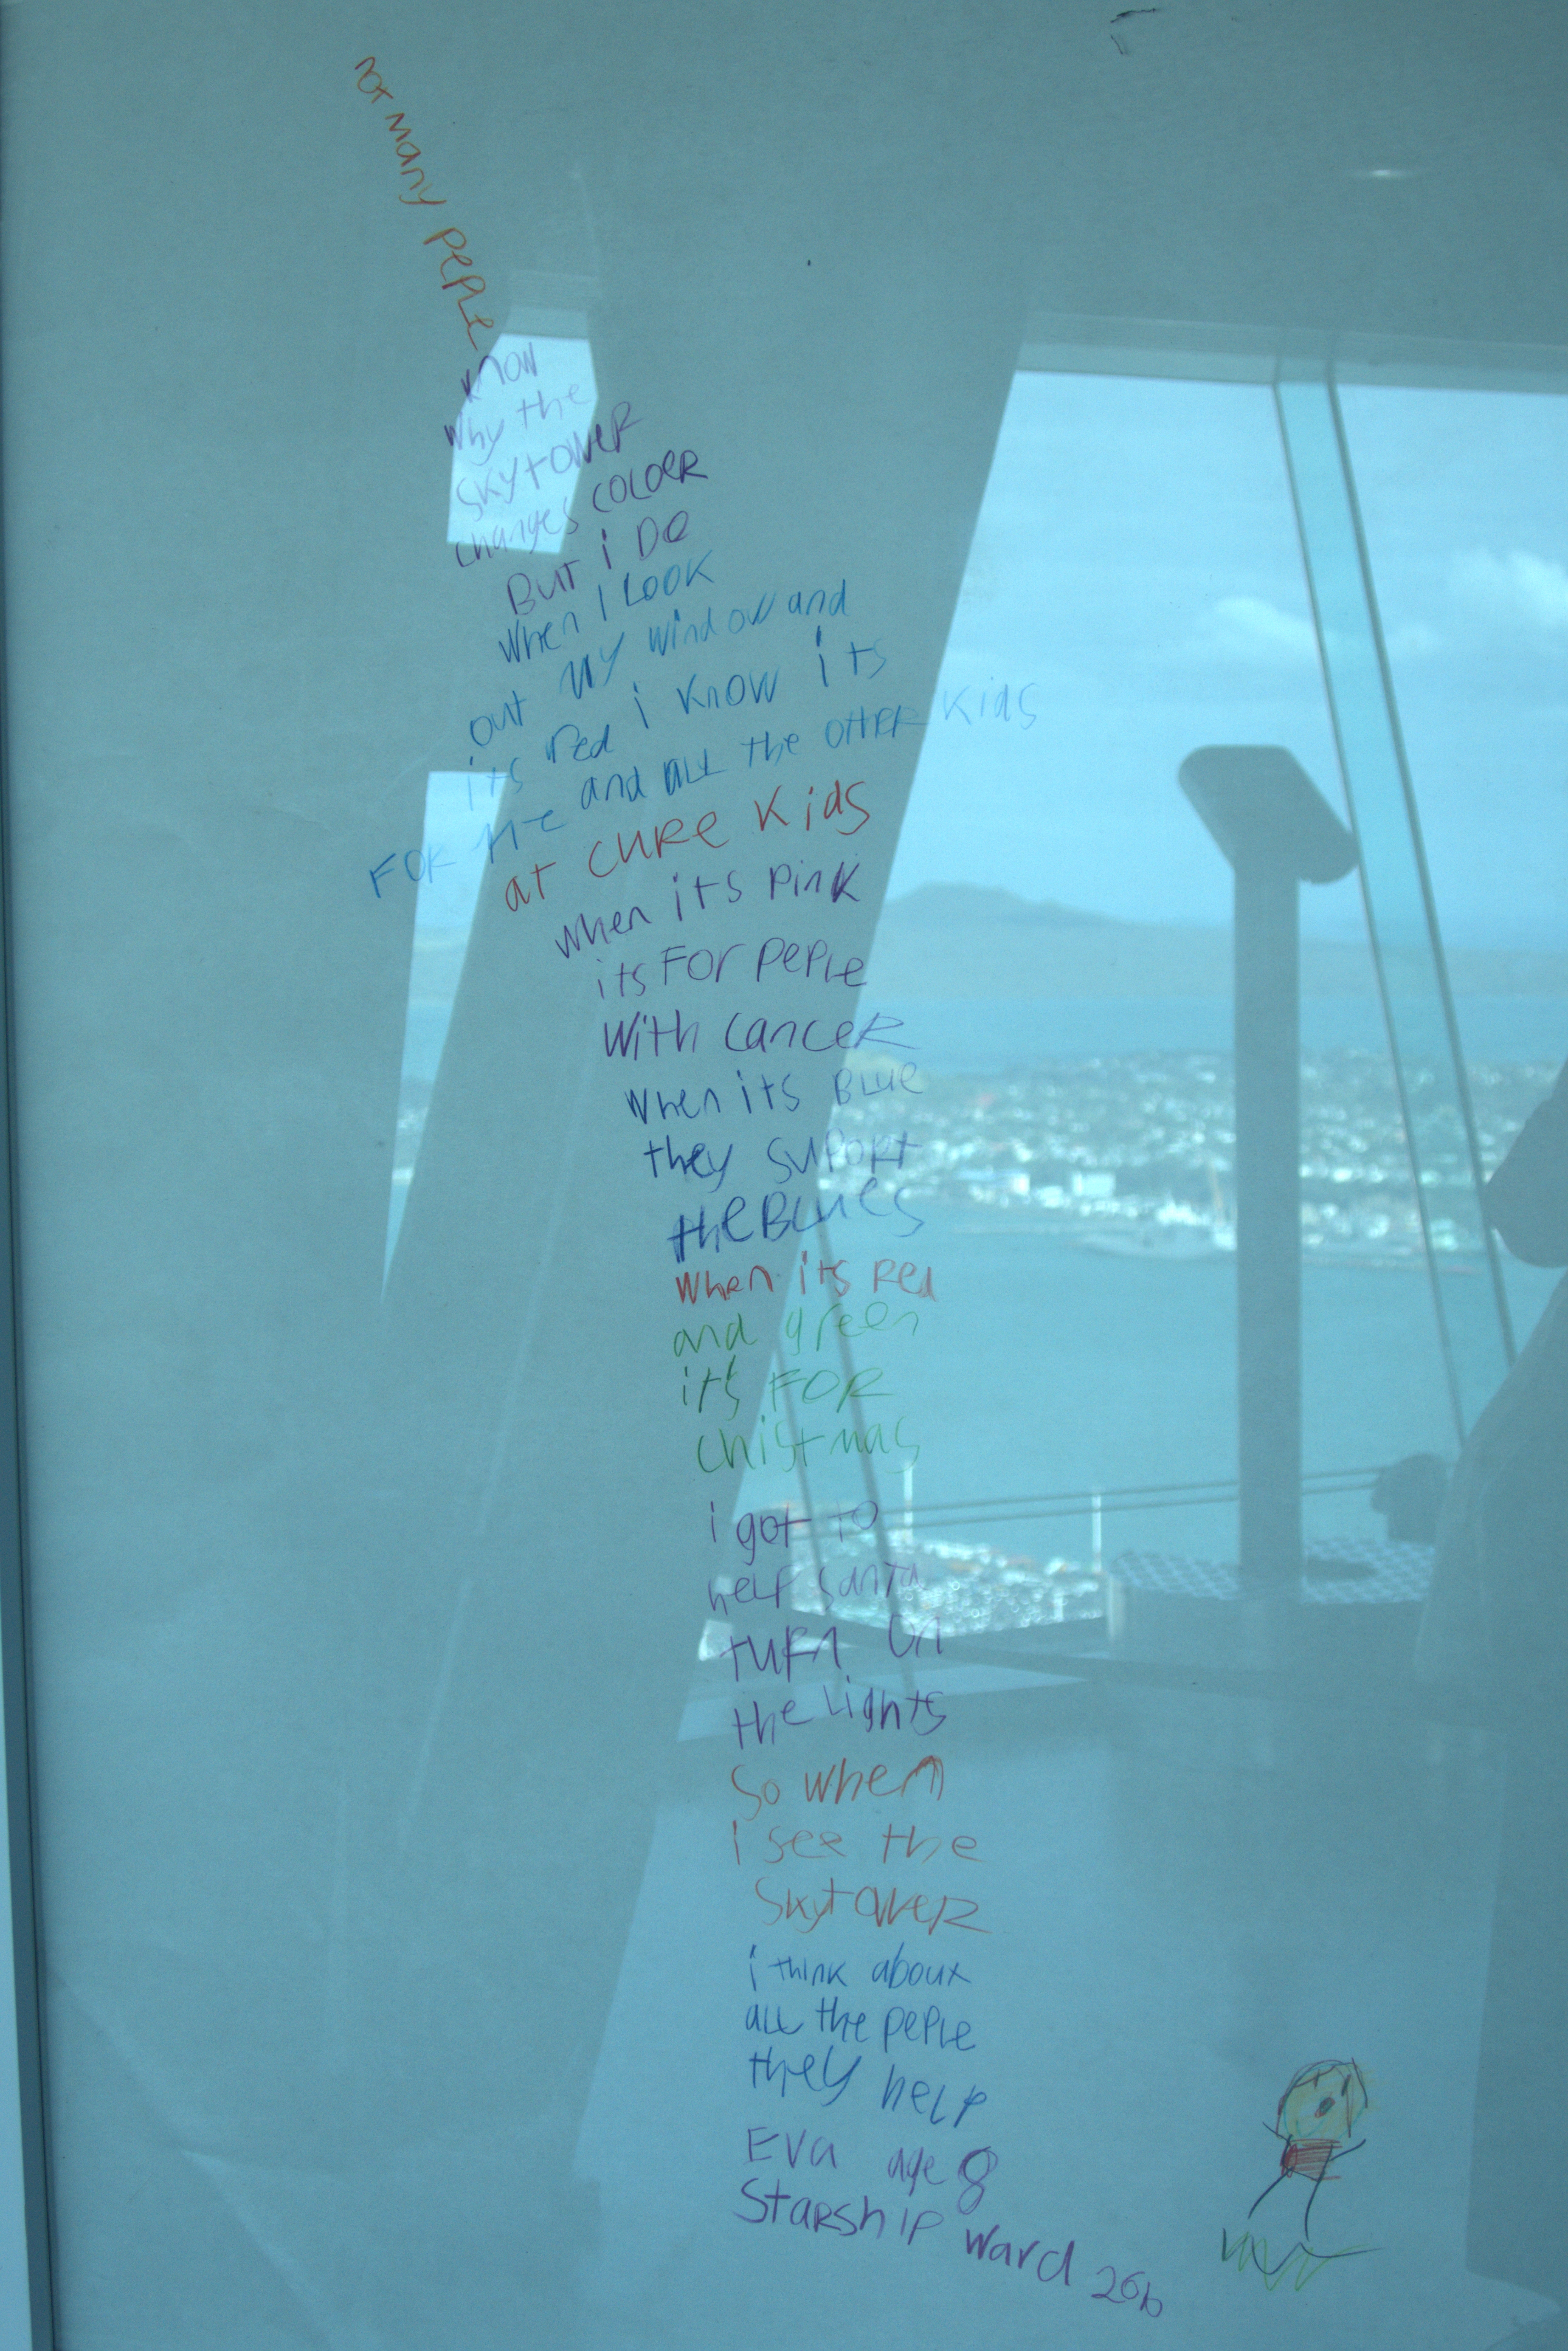 not many peple
know
why the
skytower
changes coloer
But i Do
when I Look
out my window and
its red i know its
For me and all the other kids
at cure kids
when its pink
its For peple
with cancer
when its Blue
they suport
the Blues
when its red
and green
its For
chistmas
i got to
help santa
turn on
the lights
So when
i see the
skytower
i think about
all the peple
they help
Eva age 8
Starship ward 26b